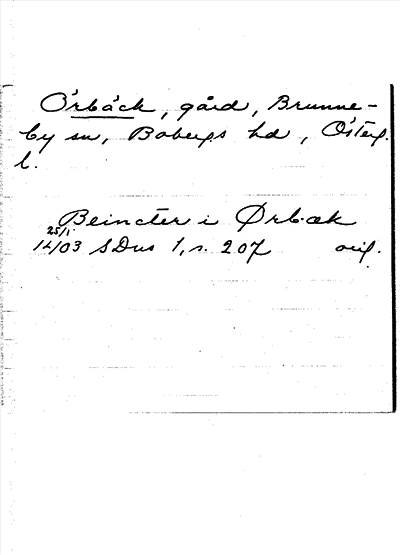 Örbäck, gård, Brunne-
by sn, Bobergs hd, Österg.
l.
Beincter i Ørbæk
25/1
1403 SDns 1, s. 207 orig.